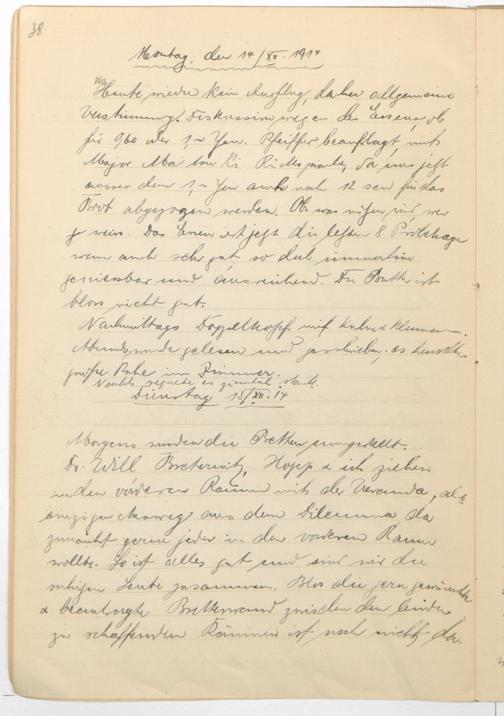 38
Montag, den 14/XII. 1914
Heute wieder kein Ausflug, daher allgemeine
Verstimmung. Diskussion wegen des Essens, ob
für 960 oder 1,~ Yen. Pfeiffer beauftragt, mit
Major Rücksprache, da uns jetzt
ausser dem 1,~ Yen auch noch 12 sen für das
Brot abgezogen werden. Ob was nützen wird, wer
weiss. Das Essen ist jetzt die letzten 8
wenn auch sehr gut, so doch immerhin
geniessbar und ausreichend. Die Butter ist
bloss nicht gut.
Nachmittags Doppelkopf mit
Abends wurde gelesen und geschrieben, es herrschte
große Ruhe im Zimmer.
Nachts regnete es ziemlich stark.
Dienstag 15/XII. 14
Morgens wurden die Betten umgestellt.
Dr. Will Hopp & ich ziehen
in den vorderen Raum mit der Veranda, als
einzigen Ausweg aus dem Dilemma da
zunächst gerne jeder in den vorderen Raum
wollte. So ist alles gut und sind wir die
ruhigen Leute zusammen. Blos die gern gewünschte
& beantragte Bretterwand zwischen den beiden
zu schaffenden Räumen ist noch nicht da.